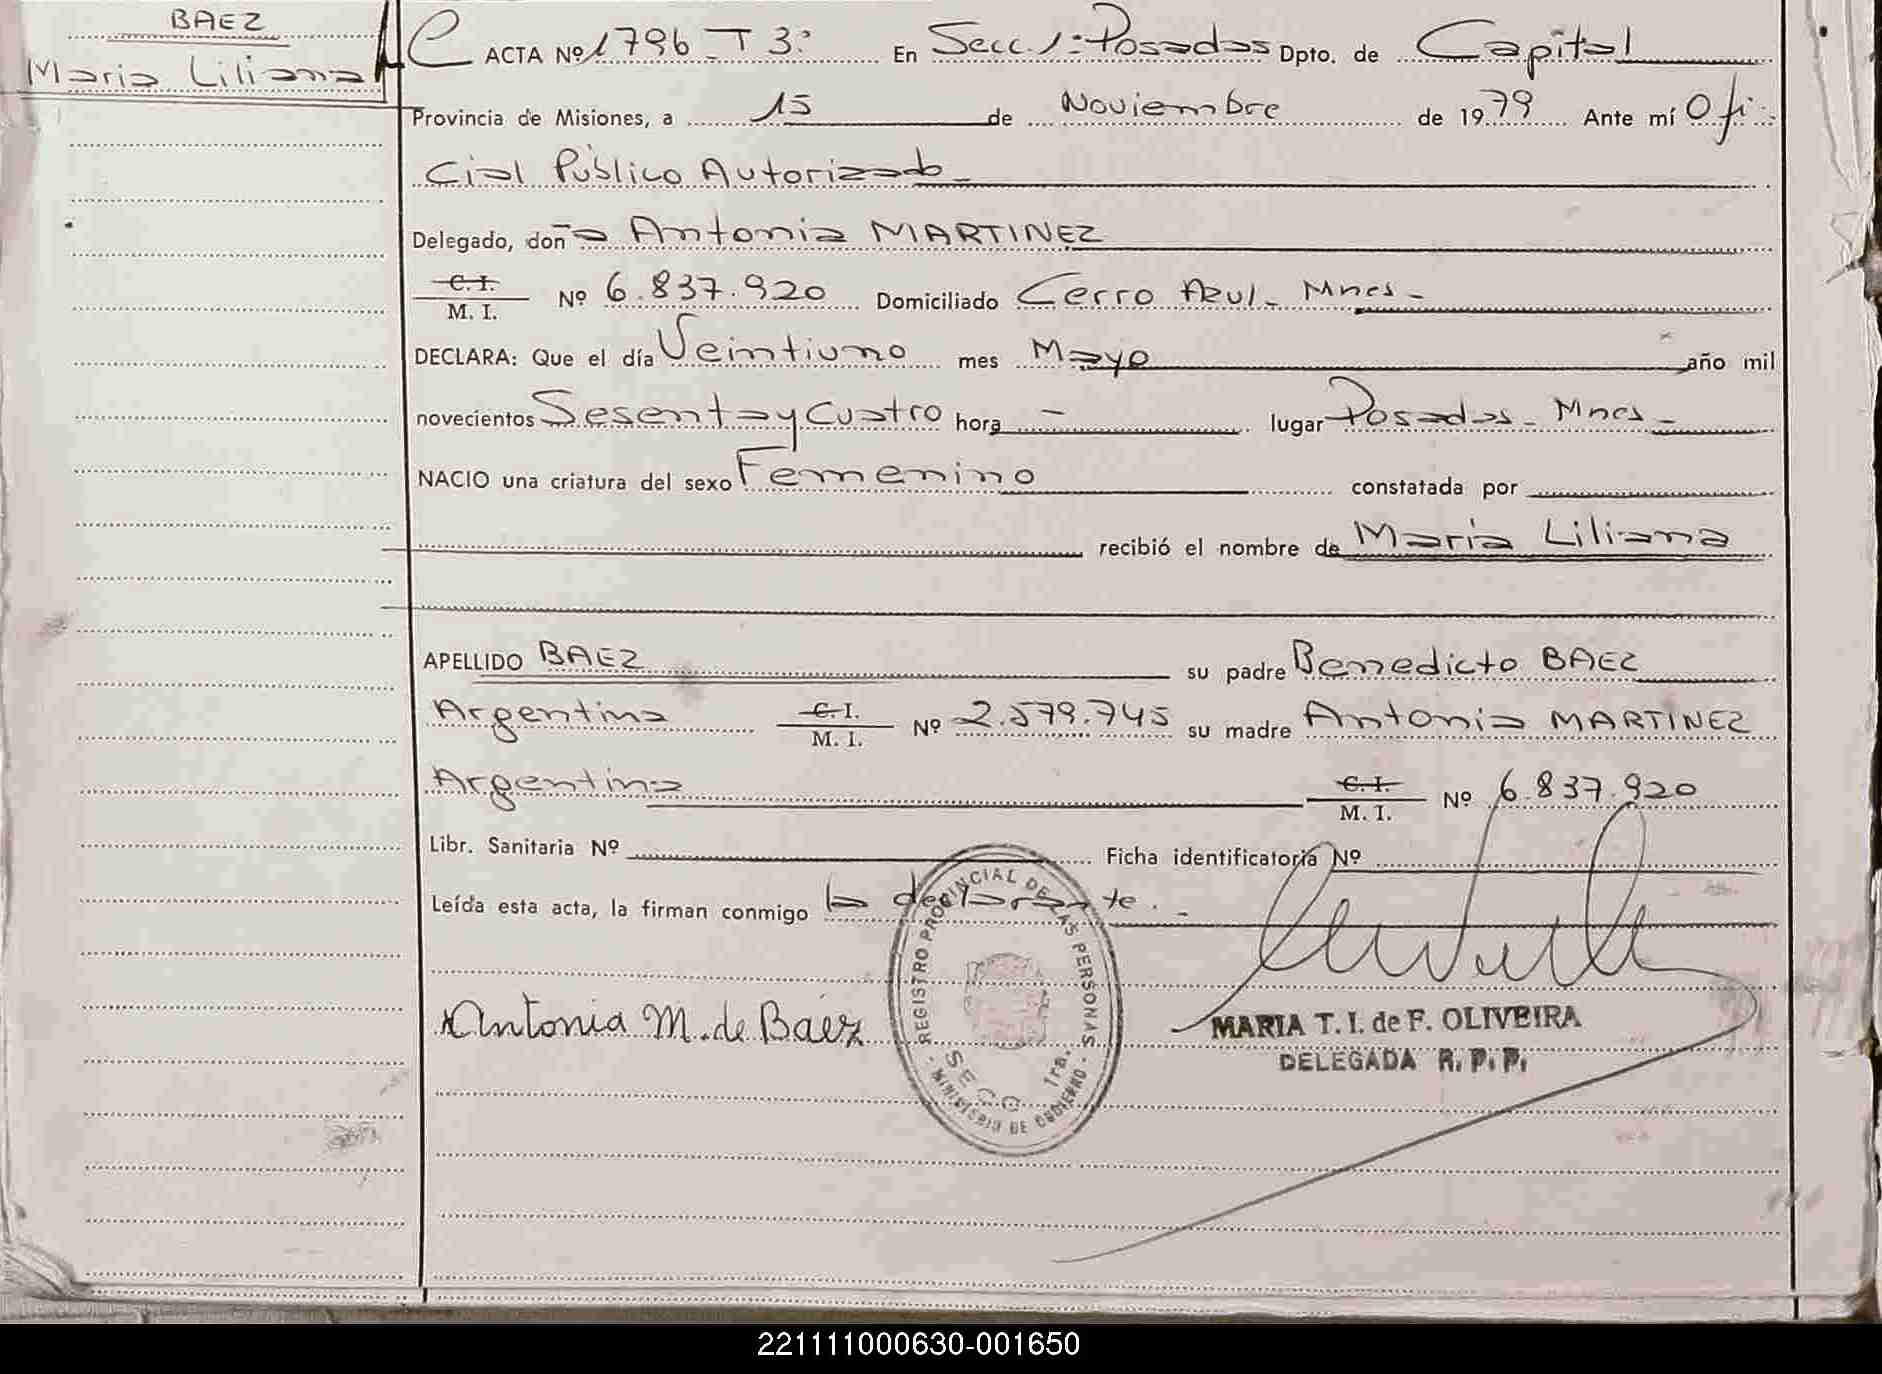 BAEZ
Maria Liliana
C ACTA Nº 1796 T 3º En Secc. 1ª Posadas Dpto. de Capital
Provincia de Misiones, a 15 de Noviembre de 1979 Ante mí Ofi
cial Público Autorizado
Delegado, don~a Antonia MARTINEZ
C. I.
M. I. Nº 6.837.920 Domiciliado Cerro Azul - Mnes -
DECLARA: Que el día Veintiuno mes Mayo año mil
novecientos Sesenta y Cuatro hora - lugar Posadas - Mnes -
NACIO una criatura del sexo Femenino constatada por
recibió el nombre de Maria Liliana
APELLIDO BAEZ su padre Benedicto BAEZ
Argentina C. I. M. I. Nº 2.579.745 su madre Antonia MARTINEZ
Argentina C. I. M. I. Nº 6.837.920
Libr. Sanitaria Nº Ficha identificatoria Nº
Leída esta acta, la firman conmigo la declarante. -
Antonia M. de Báez
REGISTRO PROVINCIAL DE LAS PERSONAS
SECC 1ra.
- MINISTERIO DE GOBIERNO -
MARIA T. I. de F. OLIVEIRA
DELEGADA R. P. P.
221111000630-001650